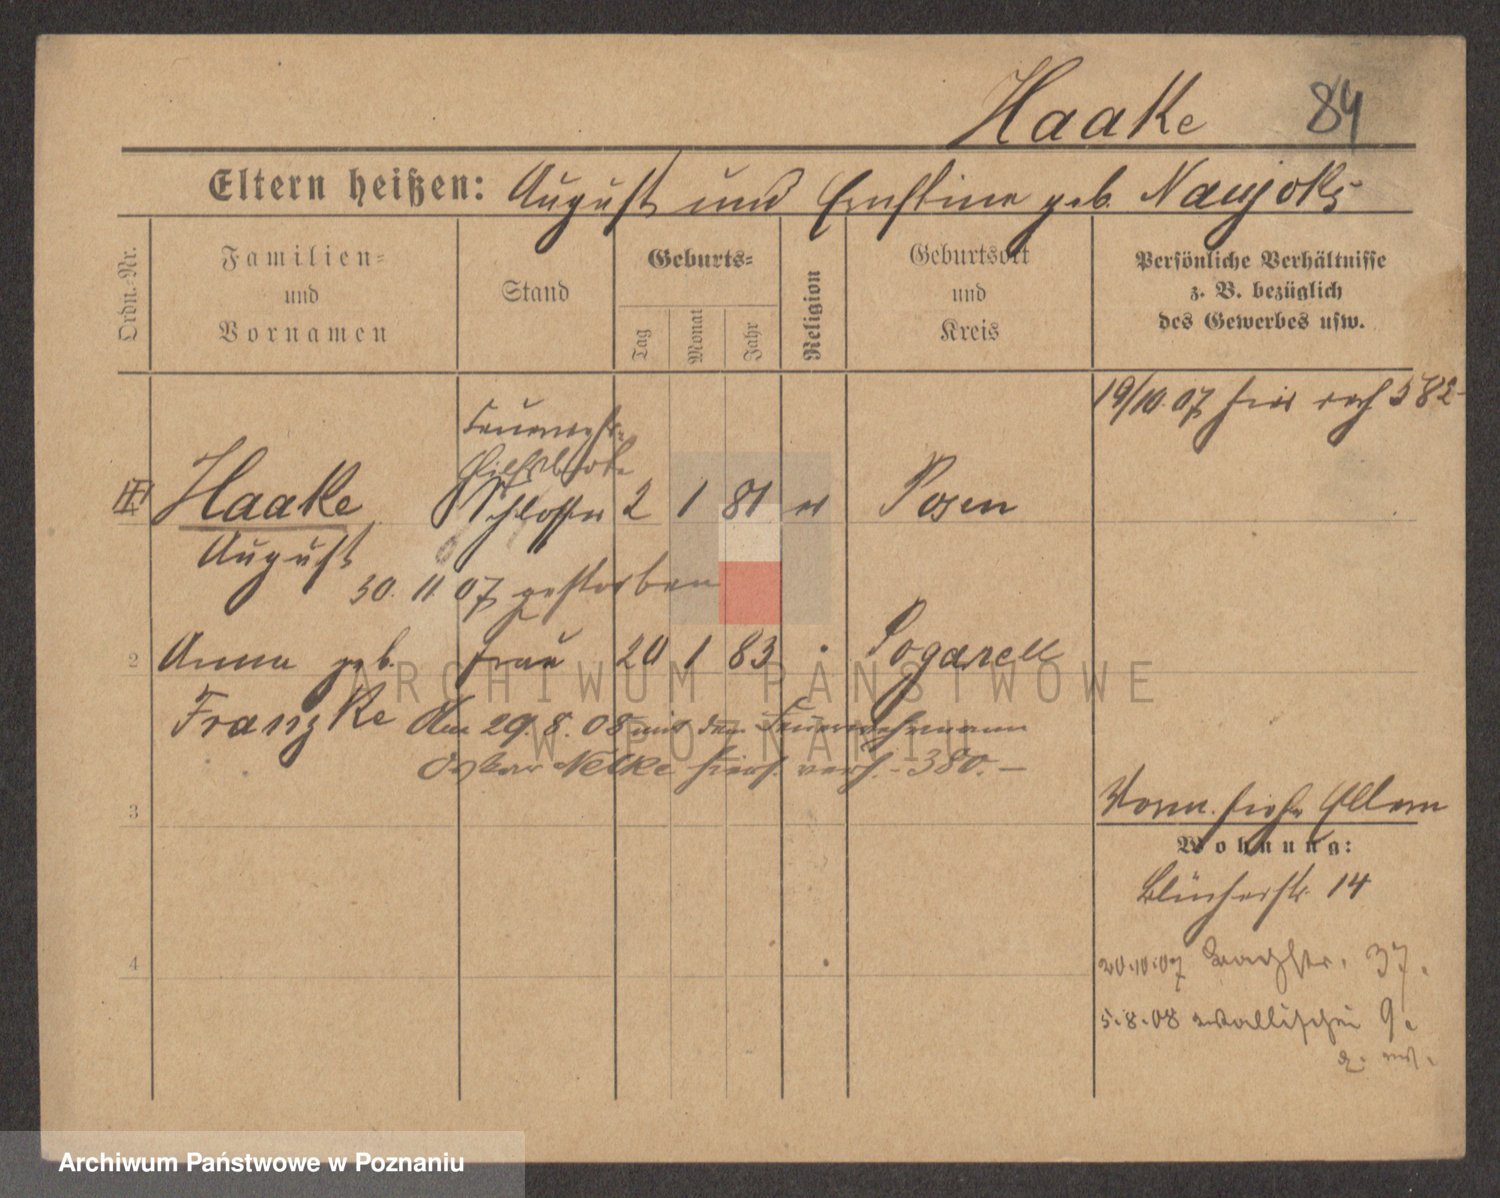 Haake 84
Eltern heißen: August und Ernstine geb. Naujoks
Ordn.-Nr.
Familien- und Vornamen
Stand
Geburts-
Tag Monat Jahr
Religion
Geburtsort und Kreis
Persönliche Verhältnisse z. B. bezüglich des Gewerbes usw.
19/10.07 hier 582
Feuerwehr-
Haake Schlosser 2 1 81 ev Posen
August
30. 11. 07 gestorben
2 Anna geb. Frau 20 1 83 Pogarell
Franzke Am 29. 8. 08 mit dem Feuerwehrmann
Oskar Nelke hiers. verh. - 380. -
3
Vorm. siehe Eltern
Wohnung:
Blücherstr. 14
4
20.10.07 37.
5.8.08 Wallischei 9.
ARCHIWUM PAŃSTWOWE
W POZNANIU
Archiwum Państwowe w Poznaniu